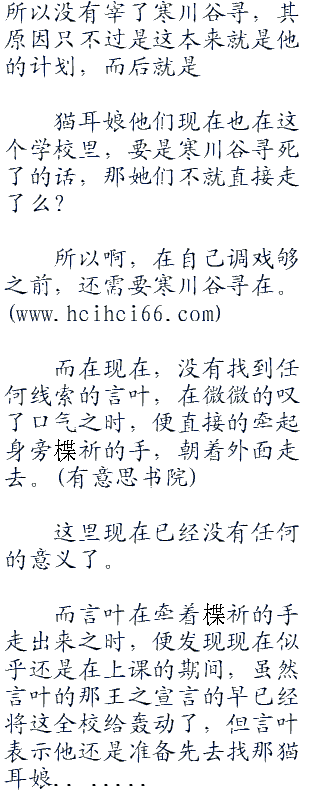 所以没有宰了寒川谷寻，其
原因只不过是这本来就是他
的计划，而后就是
猫耳娘他们现在也在这
个学校里，要是寒川谷寻死
了的话，那她们不就直接走
了么？
所以啊，在自己调戏够
之前，还需要寒川谷寻在。
(www.hcihci66.com)
而在现在，没有找到任
何线索的言叶，在微微的叹
了口气之时，便直接的牵起
身旁楪祈的手，朝着外面走
去。(有意思书院)
这里现在已经没有任何
的意义了。
而言叶在牵着楪祈的手
走出来之时，便发现现在似
乎还是在上课的期间，虽然
言叶的那王之宣言的早已经
将这全校给轰动了，但言叶
表示他还是准备先去找那猫
耳娘.. .....